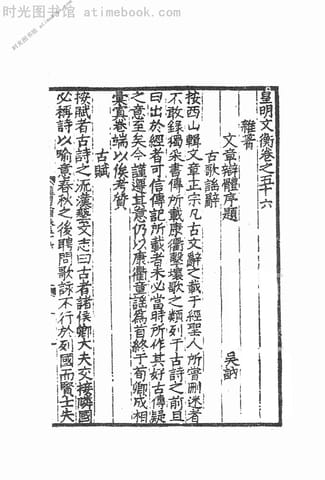 时光图书馆 atimebook.com
皇明文衡卷之五十六
雜著
文章辯體序題 吳訥
古歌謠辭
按西山輯文章正宗凡古文辭之載于經聖人所嘗刪述者
不敢錄獨采書傳所載康衢擊壤歌之類列于古詩之前且
曰出於經者可信傳記所載者未必當時所作其好古傳疑
之意至矣今謹遵其意仍以康衢童謠爲首終于荀卿成相
彙寘卷端以俟考質
古賦
按賦者古詩之流漢藝文志曰古者諸侯卿大夫交接鄰國
必稱詩以喻意春秋之後聘問歌詠不行於列國而賢士失